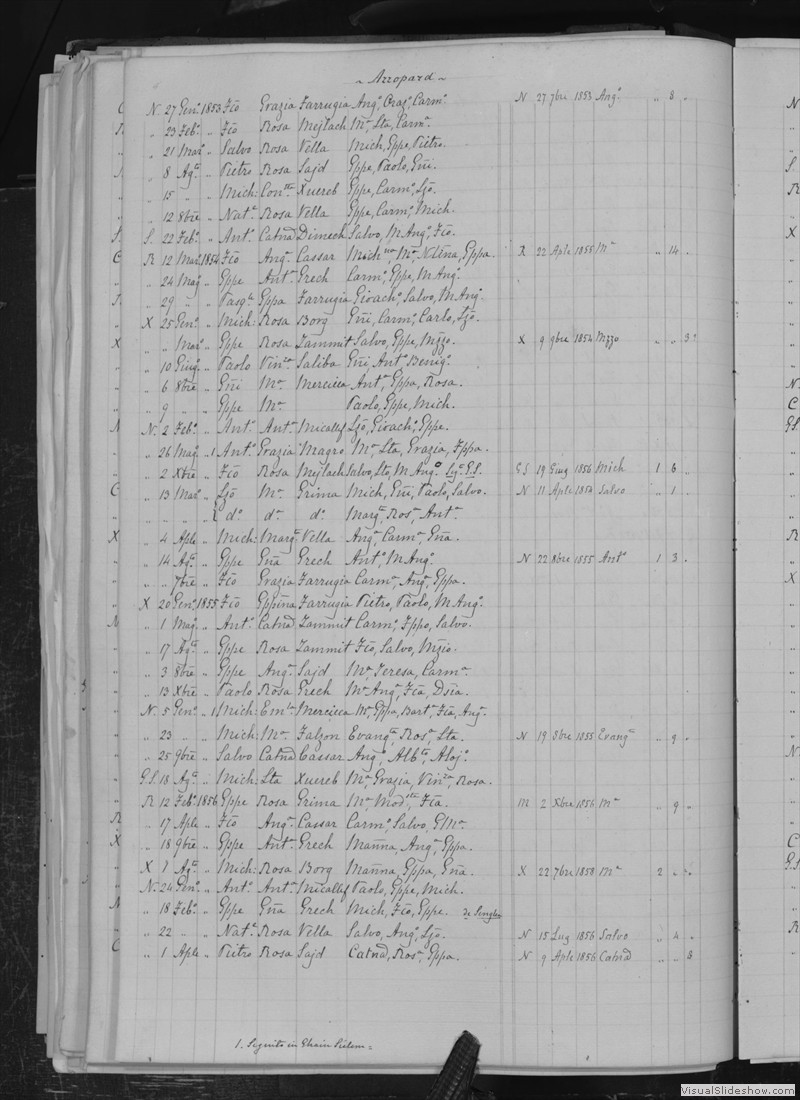 ~ Azzopard ~
N. 27 Gen.º 1853 Fco Grazia Farrugia Ang.ª, Oraz.º, Carm.ª N 27 7bre 1853 Ang.ª „ 8 „
„ 23 Feb.º „ Fco Rosa Mejlach M.ª, Sta, Carm.ª
„ 21 Mar.º „ Salvo Rosa Vella Mich, Gppe, Pietro.
„ 8 Ag.to „ Pietro Rosa Sajd Gppe, Paolo, Gñi.
„ 15 „ „ Mich: Con.tta Xuereb Gppe, Carm.º, Lzo.
„ 12 8bre „ Nat.e Rosa Vella Gppe, Carm.º, Mich.
S. S. 22 Feb.º „ Ant. Catnd Dimech Salvo, M Ang.º, Fco.
C R 12 Mar.º 1854 Fco Ang.ª Cassar M.ª, Gppa. X 22 Aple 1855 M.ª „ 14 „
„ 24 Mag.º „ Gppe Ant.ª Grech Carm.º, Gppe, M Ang.º
„ 29 „ „ Pasq.le Gppa Farrugia Gioach.º, Salvo, M Ang.º
„ X 25 Gen.º „ Mich: Rosa Borg Gñi, Carm.º, Carlo, Lzo.
X „ „ Mar.º „ Gppe Rosa Zammit Salvo, Gppe, Mzzo. X 9 9bre 1854 Mzzo „ „ 3
„ 10 Giug.º „ Paolo Vin.za Saliba Gñi, Ant.º Benig.º
„ 6 8bre „ Gñi M.ª Mercieca Ant.ª, Gppa, Rosa.
„ 9 „ „ Gppe M.ª Paolo, Gppe, Mich.
N N. 2 Feb.º „ Ant.º Ant.ª Micallef Lzo, Gioach.º, Gppe.
„ 26 Mag.º „ 1 Ant.º Grazia Magro M.ª, Sta, Grazia, Fppa.
„ 2 Xbre „ Fco Rosa Mejlach Salvo, Sta, M Ang.º G.S. G.S 19 Giug 1856 Mich 1 6 „
C „ 13 Mar.º „ Lzo M.ª Grima Mich, Gñi, Paolo, Salvo. N 11 Aple 1854 Salvo „ 1 „
„ „ „ „ { d.º d.ª d.º Marg.ª, Ros.ª, Ant.ª
X „ 4 Aple „ Mich: Marg.ª Vella Ang.ª, Carm.ª, Gña.
„ 14 Ag.to „ Gppe Gña Grech Ant.º, M Ang.º N 22 8bre 1855 Ant.º 1 3 „
„ „ 7bre „ Fco Grazia Farrugia Carm.ª, Ang.ª, Gppa.
„ X 20 Gen.º 1855 Fco Gppina Farrugia Pietro, Paolo, M Ang.º
N „ 1 Mag.º „ Ant.º Catnd Zammit Carm.º, Fppo, Salvo.
„ 17 Ag.to „ Gppe Rosa Zammit Fco, Salvo,
„ 3 8bre „ Gppe Ang.ª Sajd M.ª, Teresa, Carm.ª
„ 13 Xbre „ Paolo Rosa Grech M.ª Ang.ª, Fca,
„ N. 5 Gen.º „ 1 Mich: Em.la Mercieca M.ª, Gppa, Bart.ª, Fca, Ang.ª
„ 23 „ „ Mich: M.ª Falzon Evang.ta, Ros.ª, Sta. N 19 8bre 1855 Evang.ta „ 9 „
„ 25 9bre „ Salvo Catnd Cassar Ang.º, Alb.to, Aloj.º
„ G.S. 18 Ag.to „ Mich: Sta Xuereb M.ª, Grazia, Vin.za, Rosa.
„ R 12 Feb.º 1856 Gppe Rosa Grima M.ª, Mod.sta, Fca. M 2 Xbre 1856 M.ª „ 9 „
R „ 17 Aple „ Fco Ang.ª Cassar Carm.º, Salvo, G M.ª
X „ 18 9bre „ Gppe Ant.ª Grech Marñna, Ang.ª, Gppa.
„ X 1 Ag.to „ Mich: Rosa Borg Marñna, Gppa, Gña. X 22 7bre 1858 M.ª 2 „ „
„ N. 24 Gen.º „ Ant.º Ant.ª Micallef Paolo, Gppe, Mich.
N „ 18 Feb.º „ Gppe Gña Grech Mich, Fco, Gppe.
„ 22 „ „ Nat.e Rosa Vella Salvo, Ang.º, Lzo. N 15 Lug 1856 Salvo „ 4 „
C „ 1 Aple „ Pietro Rosa Sajd Catnd, Ros.ª, Gppa. N 9 Aple 1856 Catnd „ „ 8
1. Seguito in
VisualSlideshow.com